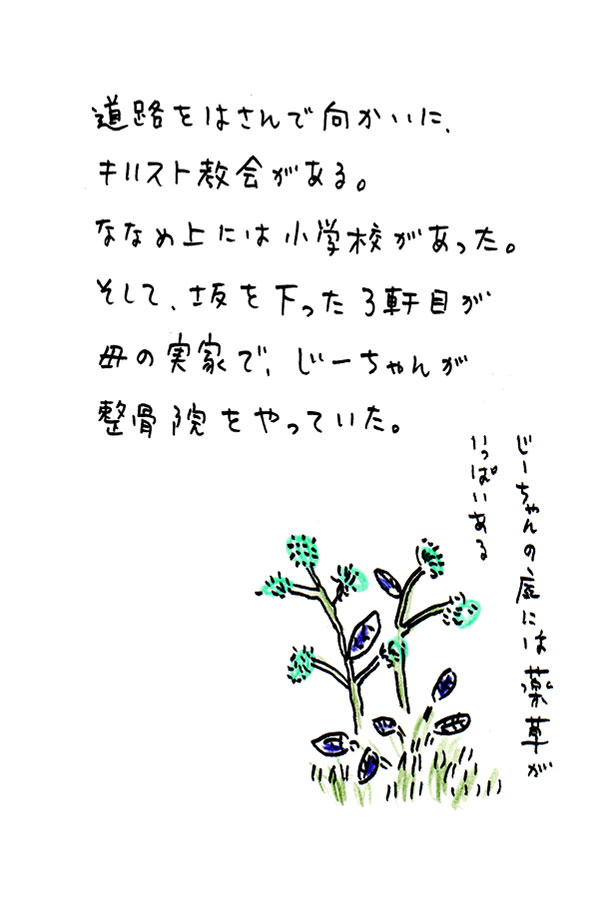 道路をはさんで向かいに、
キリスト教会がある。
ななめ上には小学校があった。
そして、坂を下った3軒目が
母の実家で、じーちゃんが
整骨院をやっていた。
じーちゃんの庭には薬草が
いっぱいある